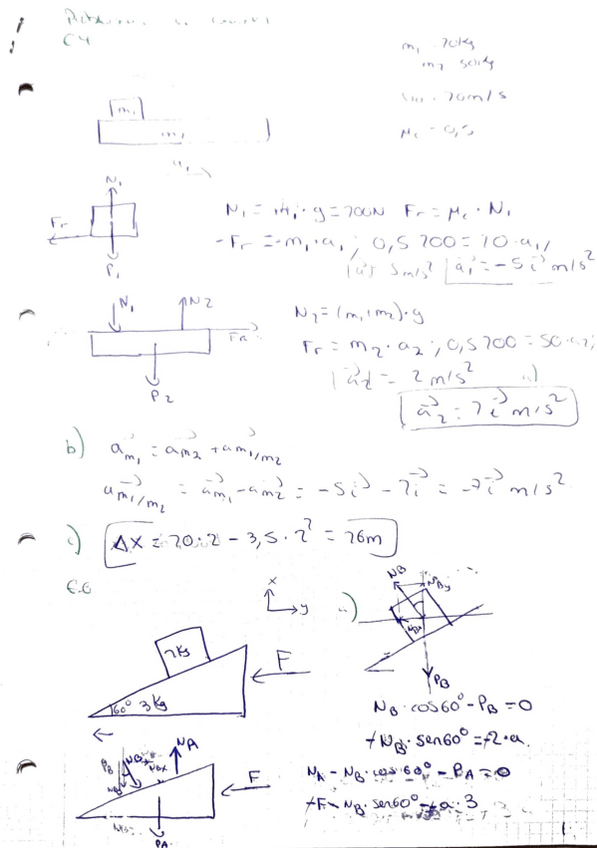 Problemas
C4
m₁ 70kg
m₂ 50kg
20m/s
μc = 0,5
m₁
m₂
N₁
Fr
P₁
N₁ = m₁·g = 700N Fr = μc · N₁
-Fr = -m₁·a₁; 0,5 700 = 70·a₁,
|a₁| 5m/s² a₁ = -5i m/s²
N₁ N2
Fr
P2
N2 = (m₁+m₂)·g
Fr = m₂·a₂; 0,5 700 = 50·a₂;
|a₂| = 7 m/s²
a₂ = 7i m/s²
b) am₁ = am₂ + am₁/m₂
am₁/m₂ = am₁ - am₂ = -5i - 7i = -7i m/s²
c) Δx = 20·2 - 3,5·2² = 26m
E.6
x
y
a)
NB NBy
NBx
PB
2kg
60° 3kg
F
NB·cos60° - PB = 0
+NB·sen60° = -2·a
PB NB NBx NA
F
PA
NA - NB·cos60° - PA = 0
+F - NB·sen60° = a·3